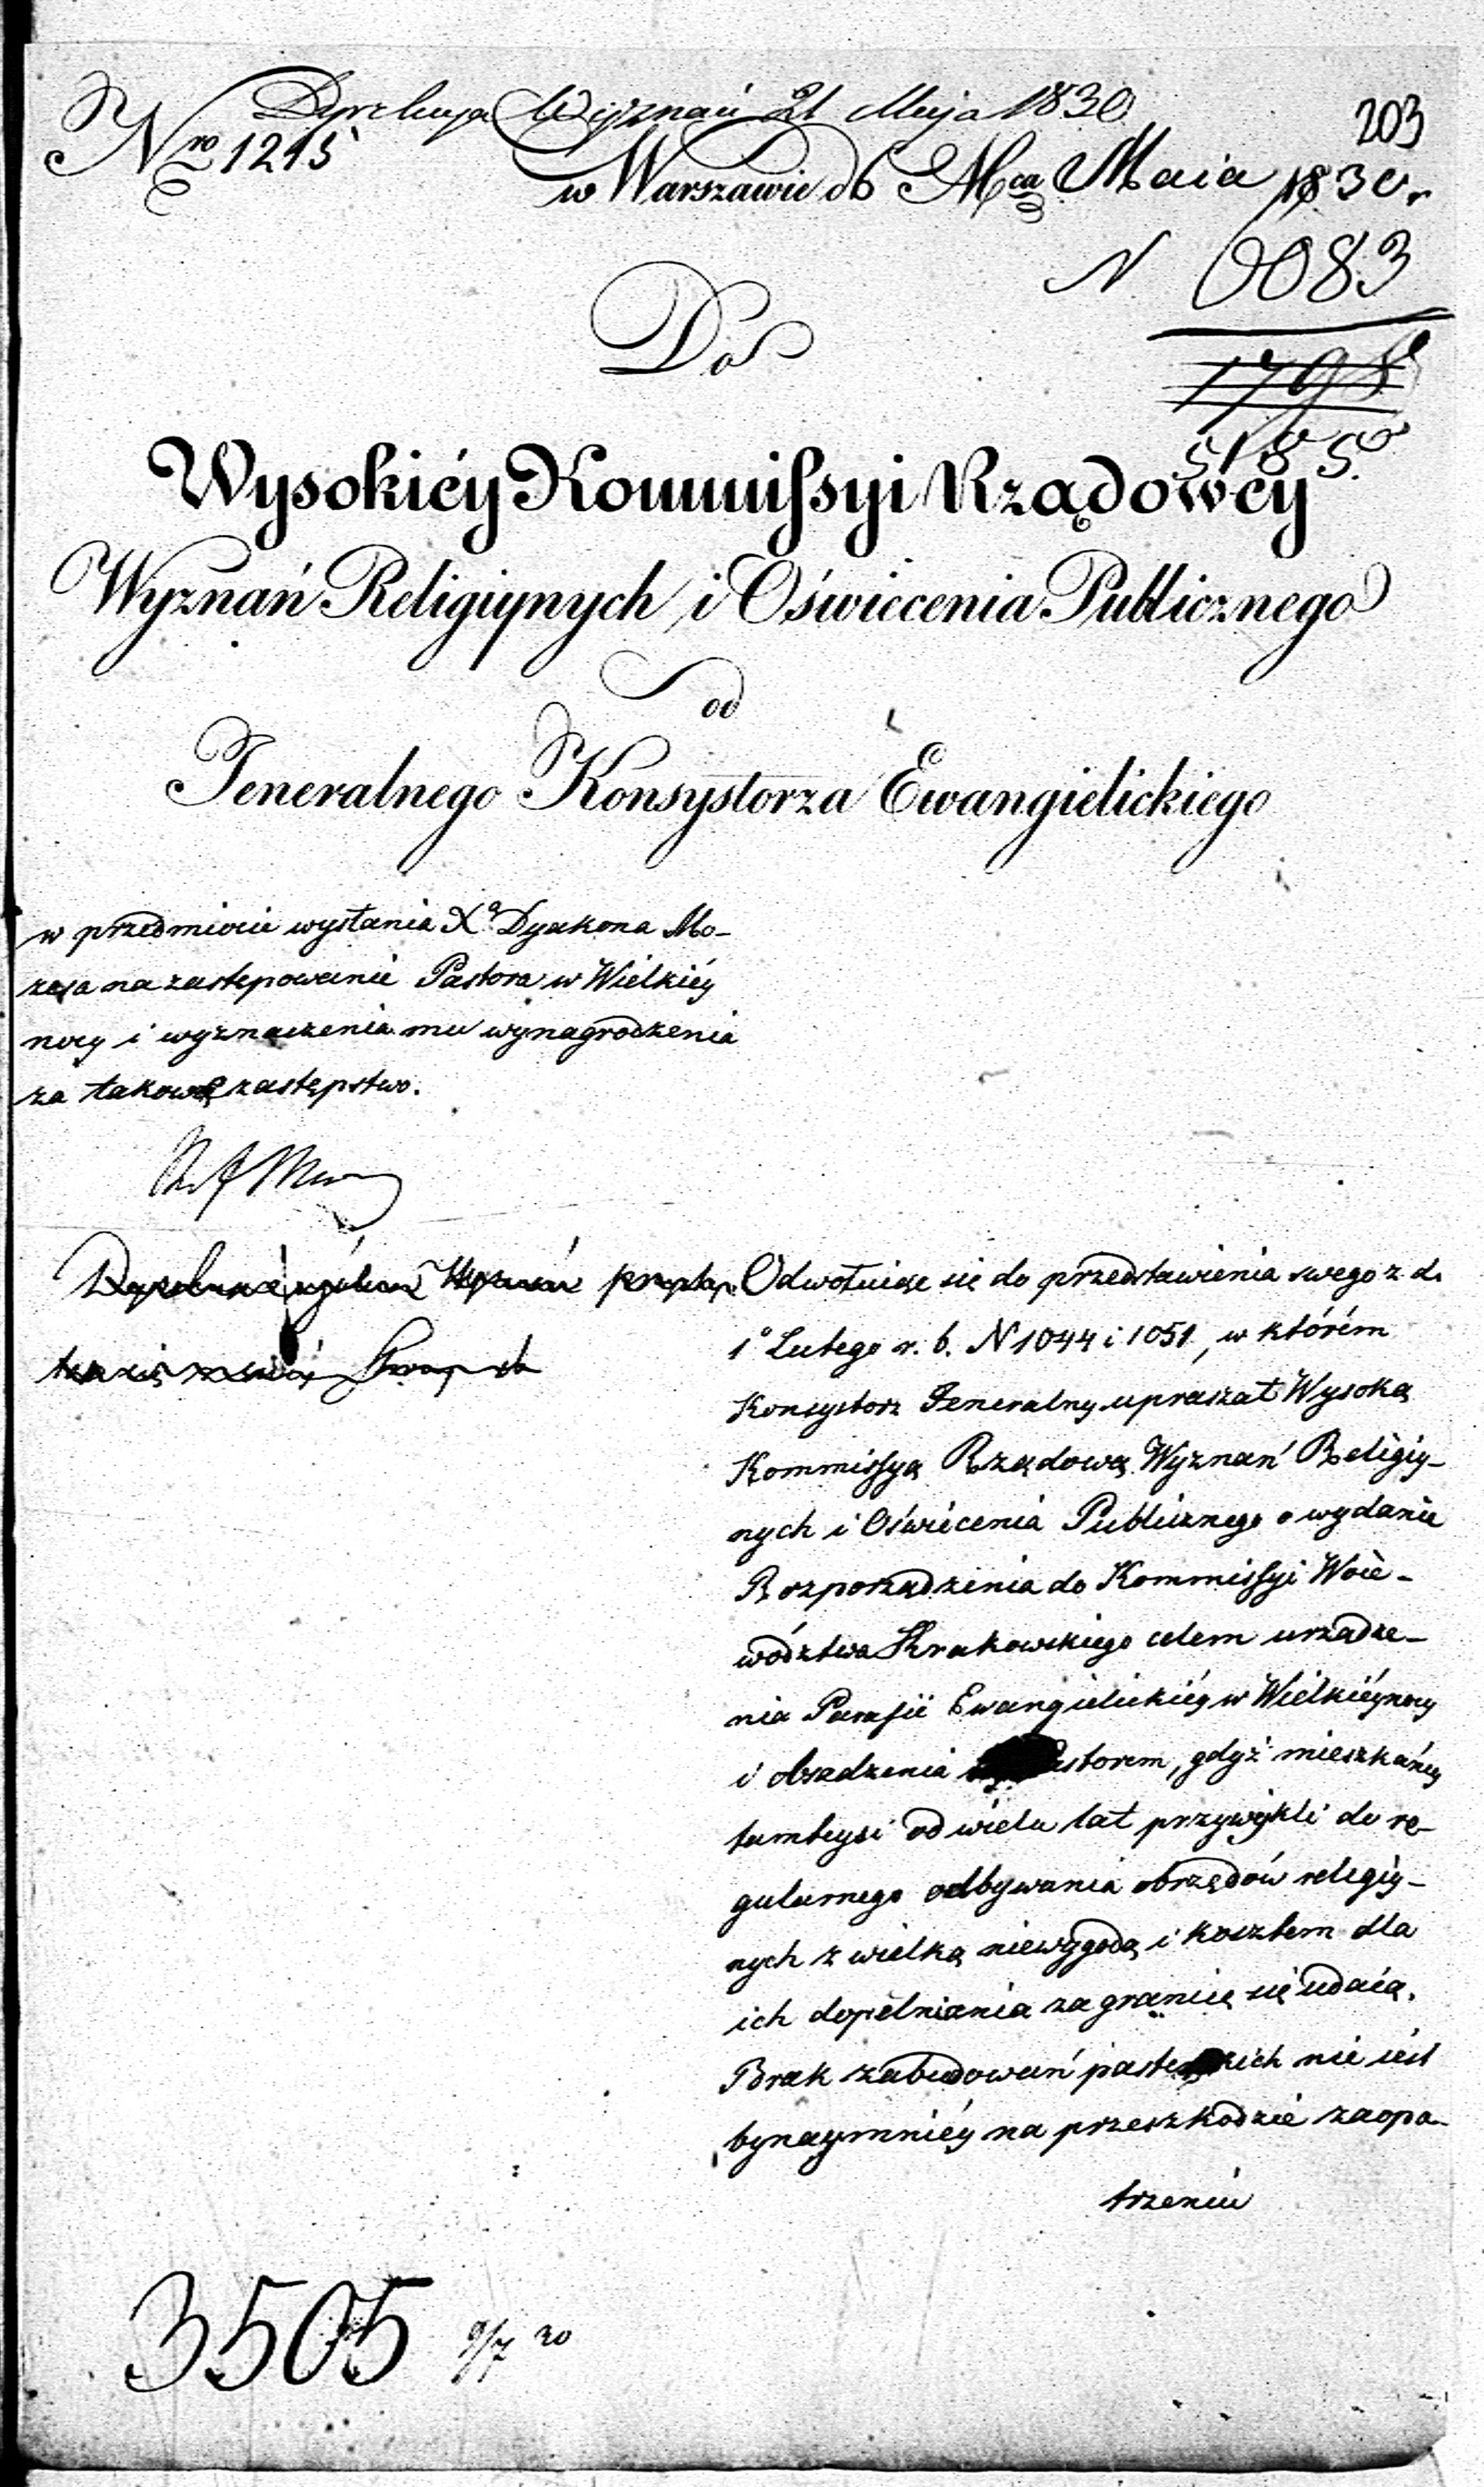 Dyrekcya Wyznań 21 Maja 1830
203
Nro 1215
w Warszawie d 6 Mca Maia 1830 r.
N 6083
1798
5185
Do
Wysokiéy Kommissyi Rządowéy
Wyznań Religiynych i Oświecenia Publicznego
od
Jeneralnego Konsystorza Ewangielickiego
w przedmiocie wysłania Xa Dyakona Mo-
zesa na zastępowanie Pastora w Wielkiéy
nocy i wyznaczenia mu wynagrodzenia
za takowe zastępstwo.
Odwołuiąc się do przedstawienia swego z d.
1o Lutego r. b. N 1044 i 1051, w którém
Konsystorz Jeneralny upraszał Wysoką
Kommissyą Rządową Wyznań Religiy-
nych i Oświecenia Publicznego o wydanie
Rozporządzenia do Kommissyi Woie-
wództwa Krakowskiego celem urządze-
nia Parafii Ewangielickiéy w Wielkiéynocy
i obsadzenia Pastorem, gdyż mieszkańcy
tamteysi od wielu lat przywykli do re-
gularnego odbywania obrzędów religiy-
nych z wielką niewygodą i kosztem dla
ich dopełniania za granicę się udaią.
Brak zabudowań pasterskich nie iest
bynaymniéy na przeszkodzie zaopa-
trzeniu
3505 9/7 30